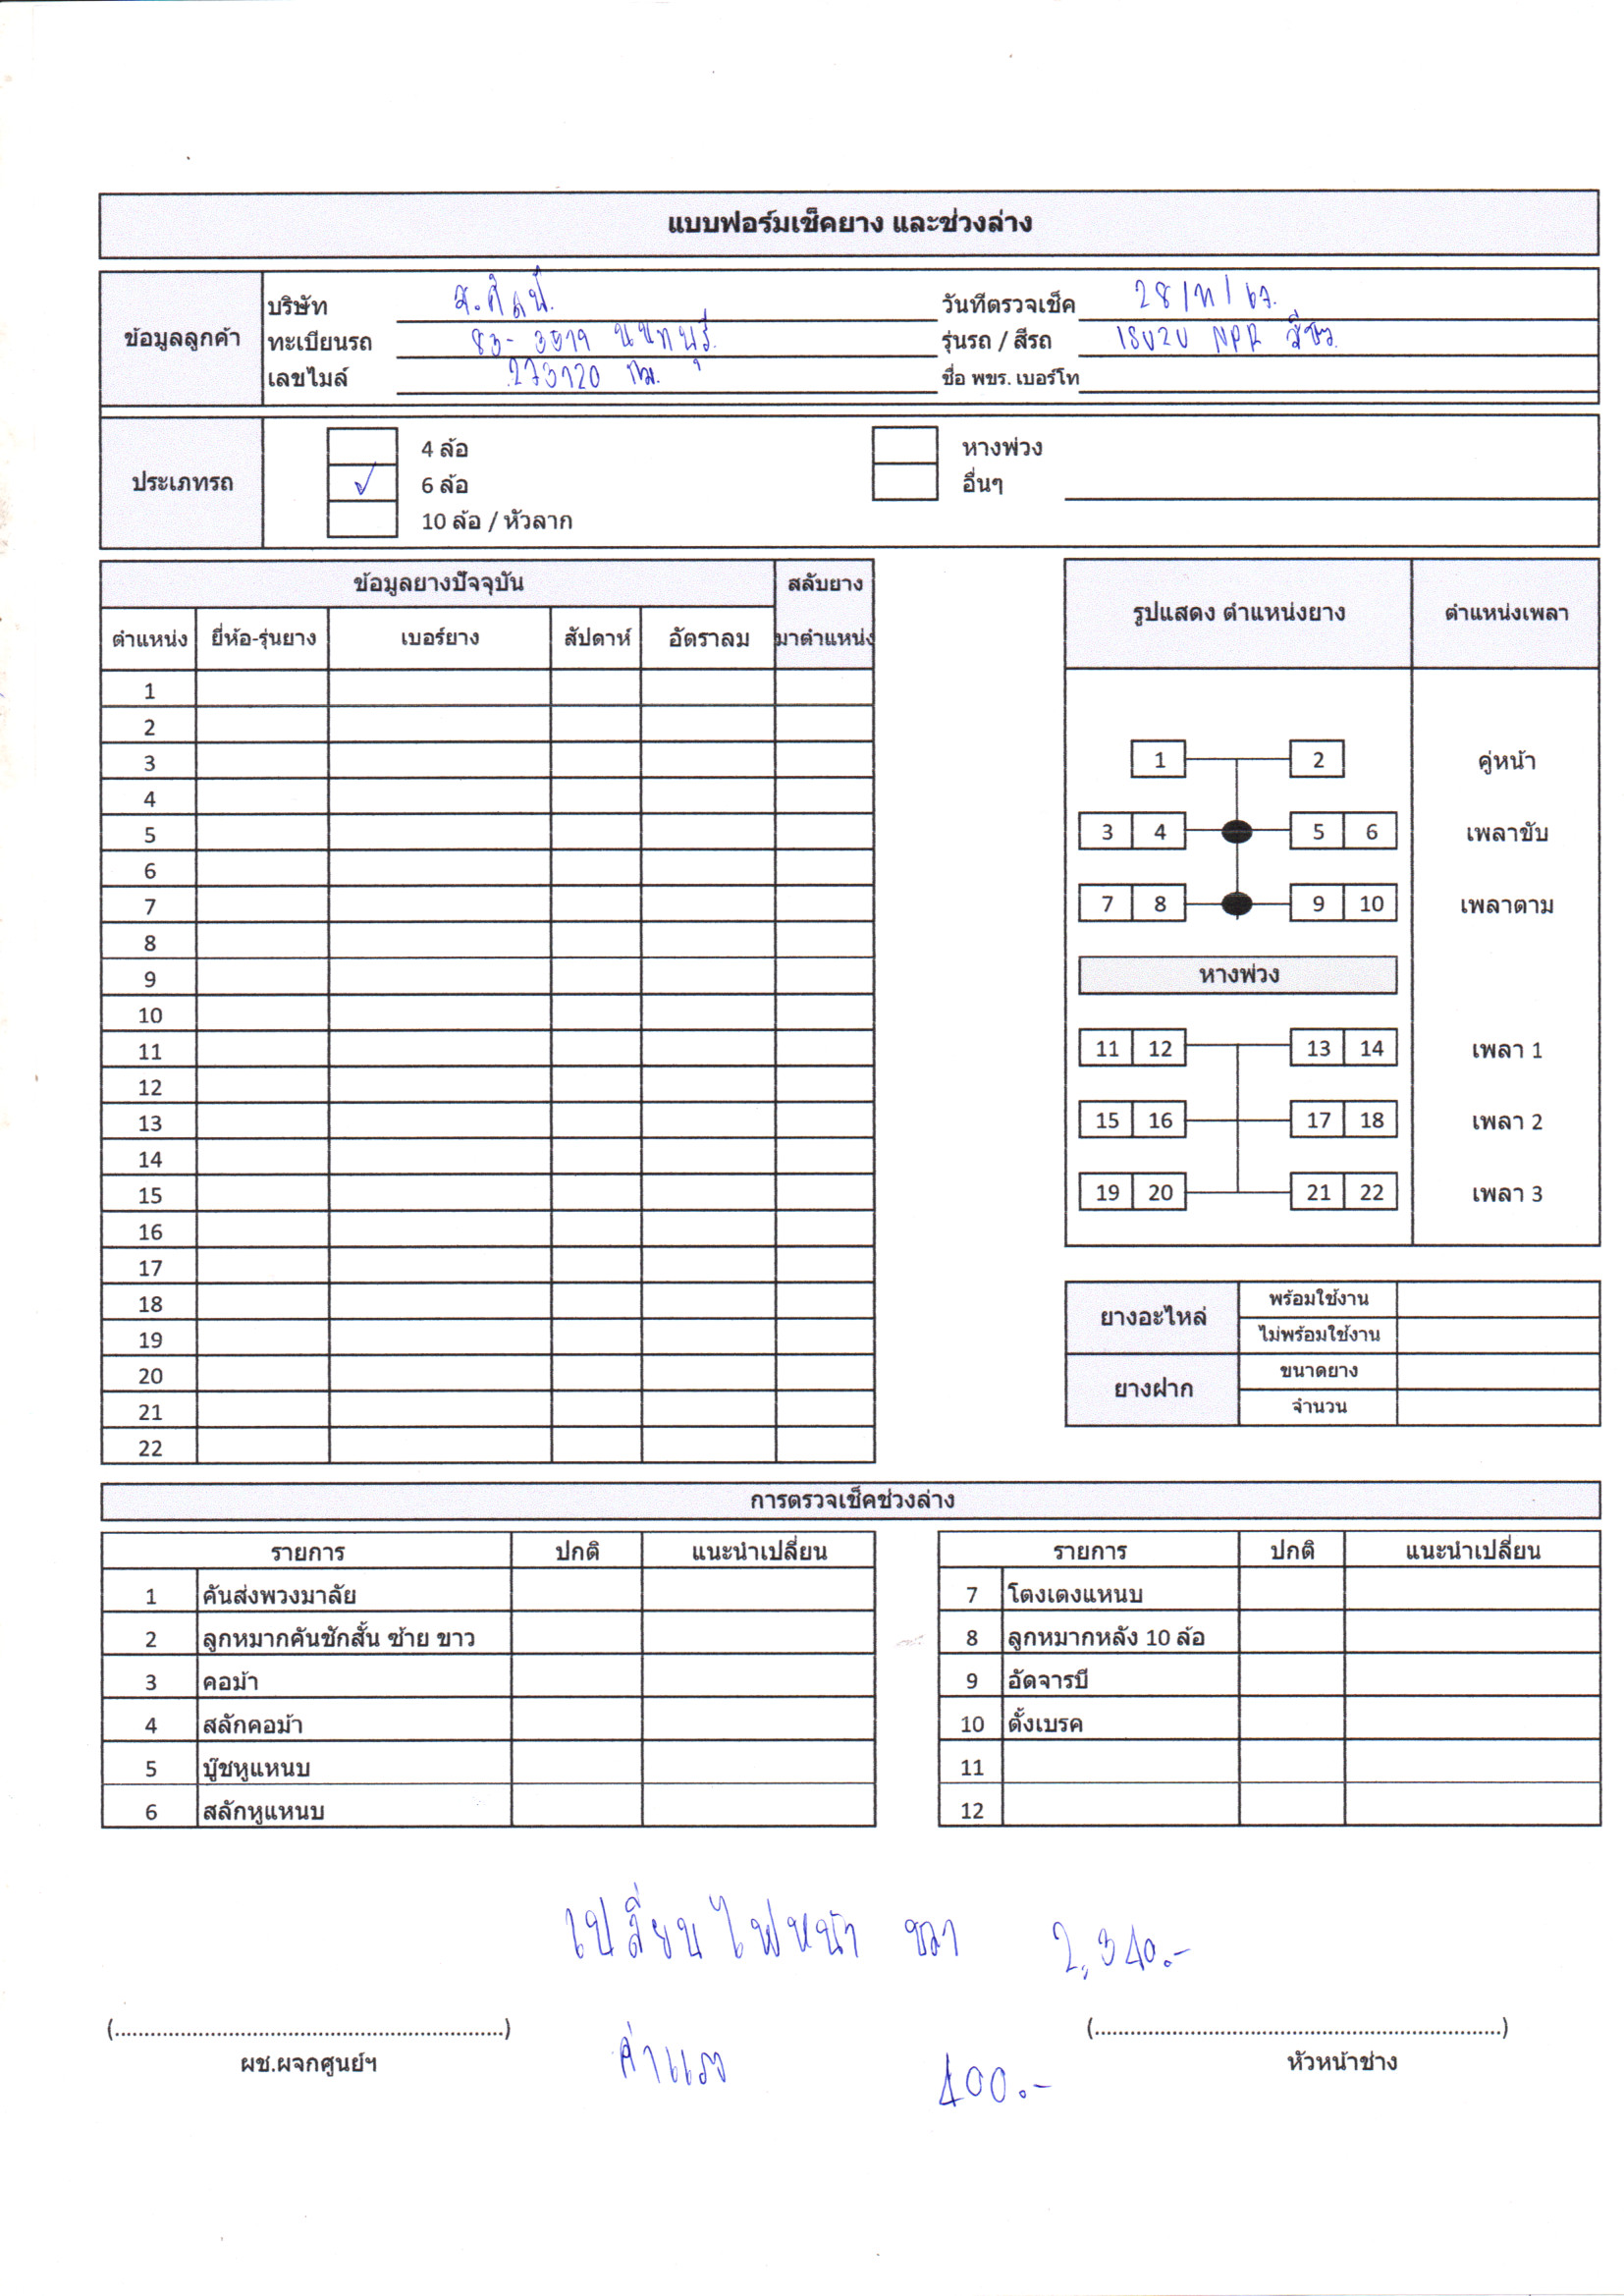 แบบฟอร์มเช็คยาง และช่วงล่าง
ข้อมูลลูกค้า
บริษัท
วันที่ตรวจเช็ค 28/11/67.
ทะเบียนรถ นนทบุรี
รุ่นรถ / สีรถ ISUZU NPR
เลขไมล์ 273120 กม.
ชื่อ พขร. เบอร์โท
ประเภทรถ
4 ล้อ
✓ 6 ล้อ
10 ล้อ / หัวลาก
หางพ่วง
อื่นๆ
ข้อมูลยางปัจจุบัน สลับยาง
ตำแหน่ง ยี่ห้อ-รุ่นยาง เบอร์ยาง สัปดาห์ อัตราลม มาตำแหน่ง
1
2
3
4
5
6
7
8
9
10
11
12
13
14
15
16
17
18
19
20
21
22
รูปแสดง ตำแหน่งยาง ตำแหน่งเพลา
1 2 คู่หน้า
3 4 5 6 เพลาขับ
7 8 9 10 เพลาตาม
หางพ่วง
11 12 13 14 เพลา 1
15 16 17 18 เพลา 2
19 20 21 22 เพลา 3
ยางอะไหล่ พร้อมใช้งาน
ไม่พร้อมใช้งาน
ยางฝาก ขนาดยาง
จำนวน
การตรวจเช็คช่วงล่าง
รายการ ปกติ แนะนำเปลี่ยน
1 คันส่งพวงมาลัย
2 ลูกหมากคันชักสั้น ซ้าย ขาว
3 คอม้า
4 สลักคอม้า
5 บู๊ชหูแหนบ
6 สลักหูแหนบ
รายการ ปกติ แนะนำเปลี่ยน
7 โตงเตงแหนบ
8 ลูกหมากหลัง 10 ล้อ
9 อัดจารบี
10 ตั้งเบรค
11
12
เปลี่ยนไฟหน้า ขวา 2,340.-
ค่าแรง 400.-
(..............................)
ผช.ผจกศูนย์ฯ
(..............................)
หัวหน้าช่าง